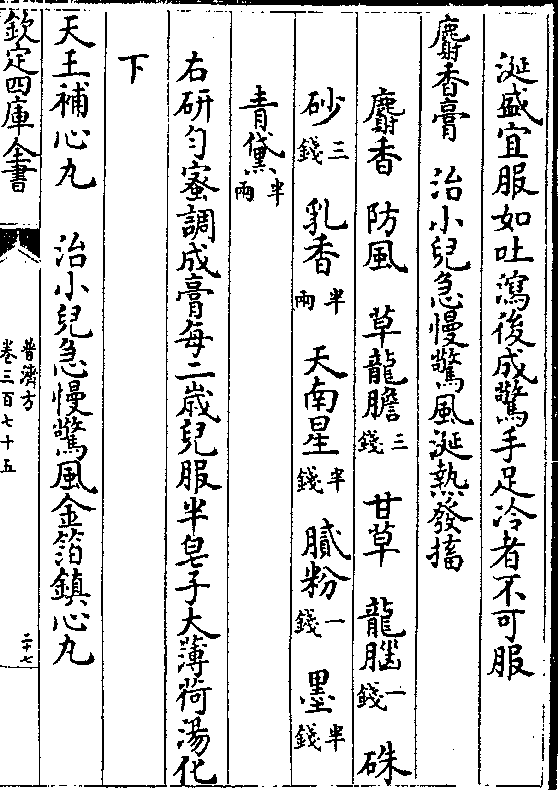 涎盛宜服如吐瀉後成驚手足冷者不可服
麝香膏　治小兒急慢驚風涎熱發搐
麝香　防風　草龍膽三錢　甘草　龍腦一錢　硃
砂三錢　乳香半兩　天南星半錢　膩粉一錢　墨半錢
青黛半兩
右研勻蜜調成膏每二歳兒服半皂子大薄荷湯化
下
天王補心丸　治小兒急慢驚風金箔鎮心丸
欽定四庫全書　普濟方卷三百七十五　二十七